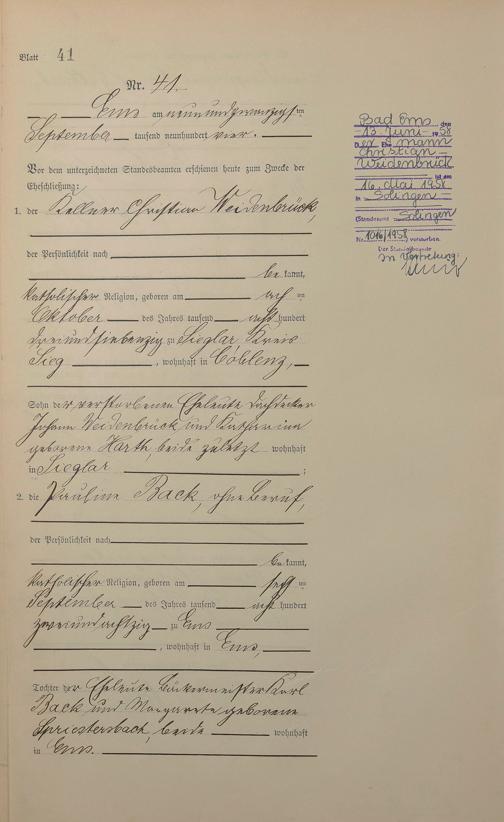 Blatt 41
Nr. 41.
Ems am neunundzwanzigsten
September tausend neunhundert vier.
Vor dem unterzeichneten Standesbeamten erschienen heute zum Zwecke der
Eheschließung:
1. der Kellner Christian Weidenbrück,
der Persönlichkeit nach
bekannt,
katholischer Religion, geboren am achten
Oktober des Jahres tausend achthundert
dreiundsiebenzig zu Sieglar, Kreis
Sieg, wohnhaft in Coblenz,
Sohn der verstorbenen Eheleute Dachdecker
Johann Weidenbrück und Katharina
geborene Harth, beide zuletzt wohnhaft
in Sieglar;
2. die Pauline Back, ohne Beruf,
der Persönlichkeit nach
bekannt,
katholischer Religion, geboren am sechsten
September des Jahres tausend achthundert
zweiundachtzig zu Ems
, wohnhaft in Ems,
Tochter der Eheleute Bäckermeister Karl
Back und Margarete geborene
Spriestersbach, beide wohnhaft
in Ems.
Bad Ems, den
13. Juni 1958
Der Ehemann
Christian
Weidenbrück
ist am
16. Mai 1958
in Solingen
(Standesamt Solingen
Nr. 1016/1958) verstorben.
Der Standesbeamte
In Vertretung: